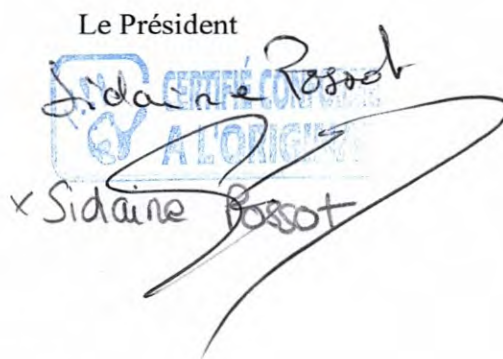 Le Président
Sidaine Possot
CERTIFIÉ CONFORME
A L'ORIGINAL
x Sidaine Possot